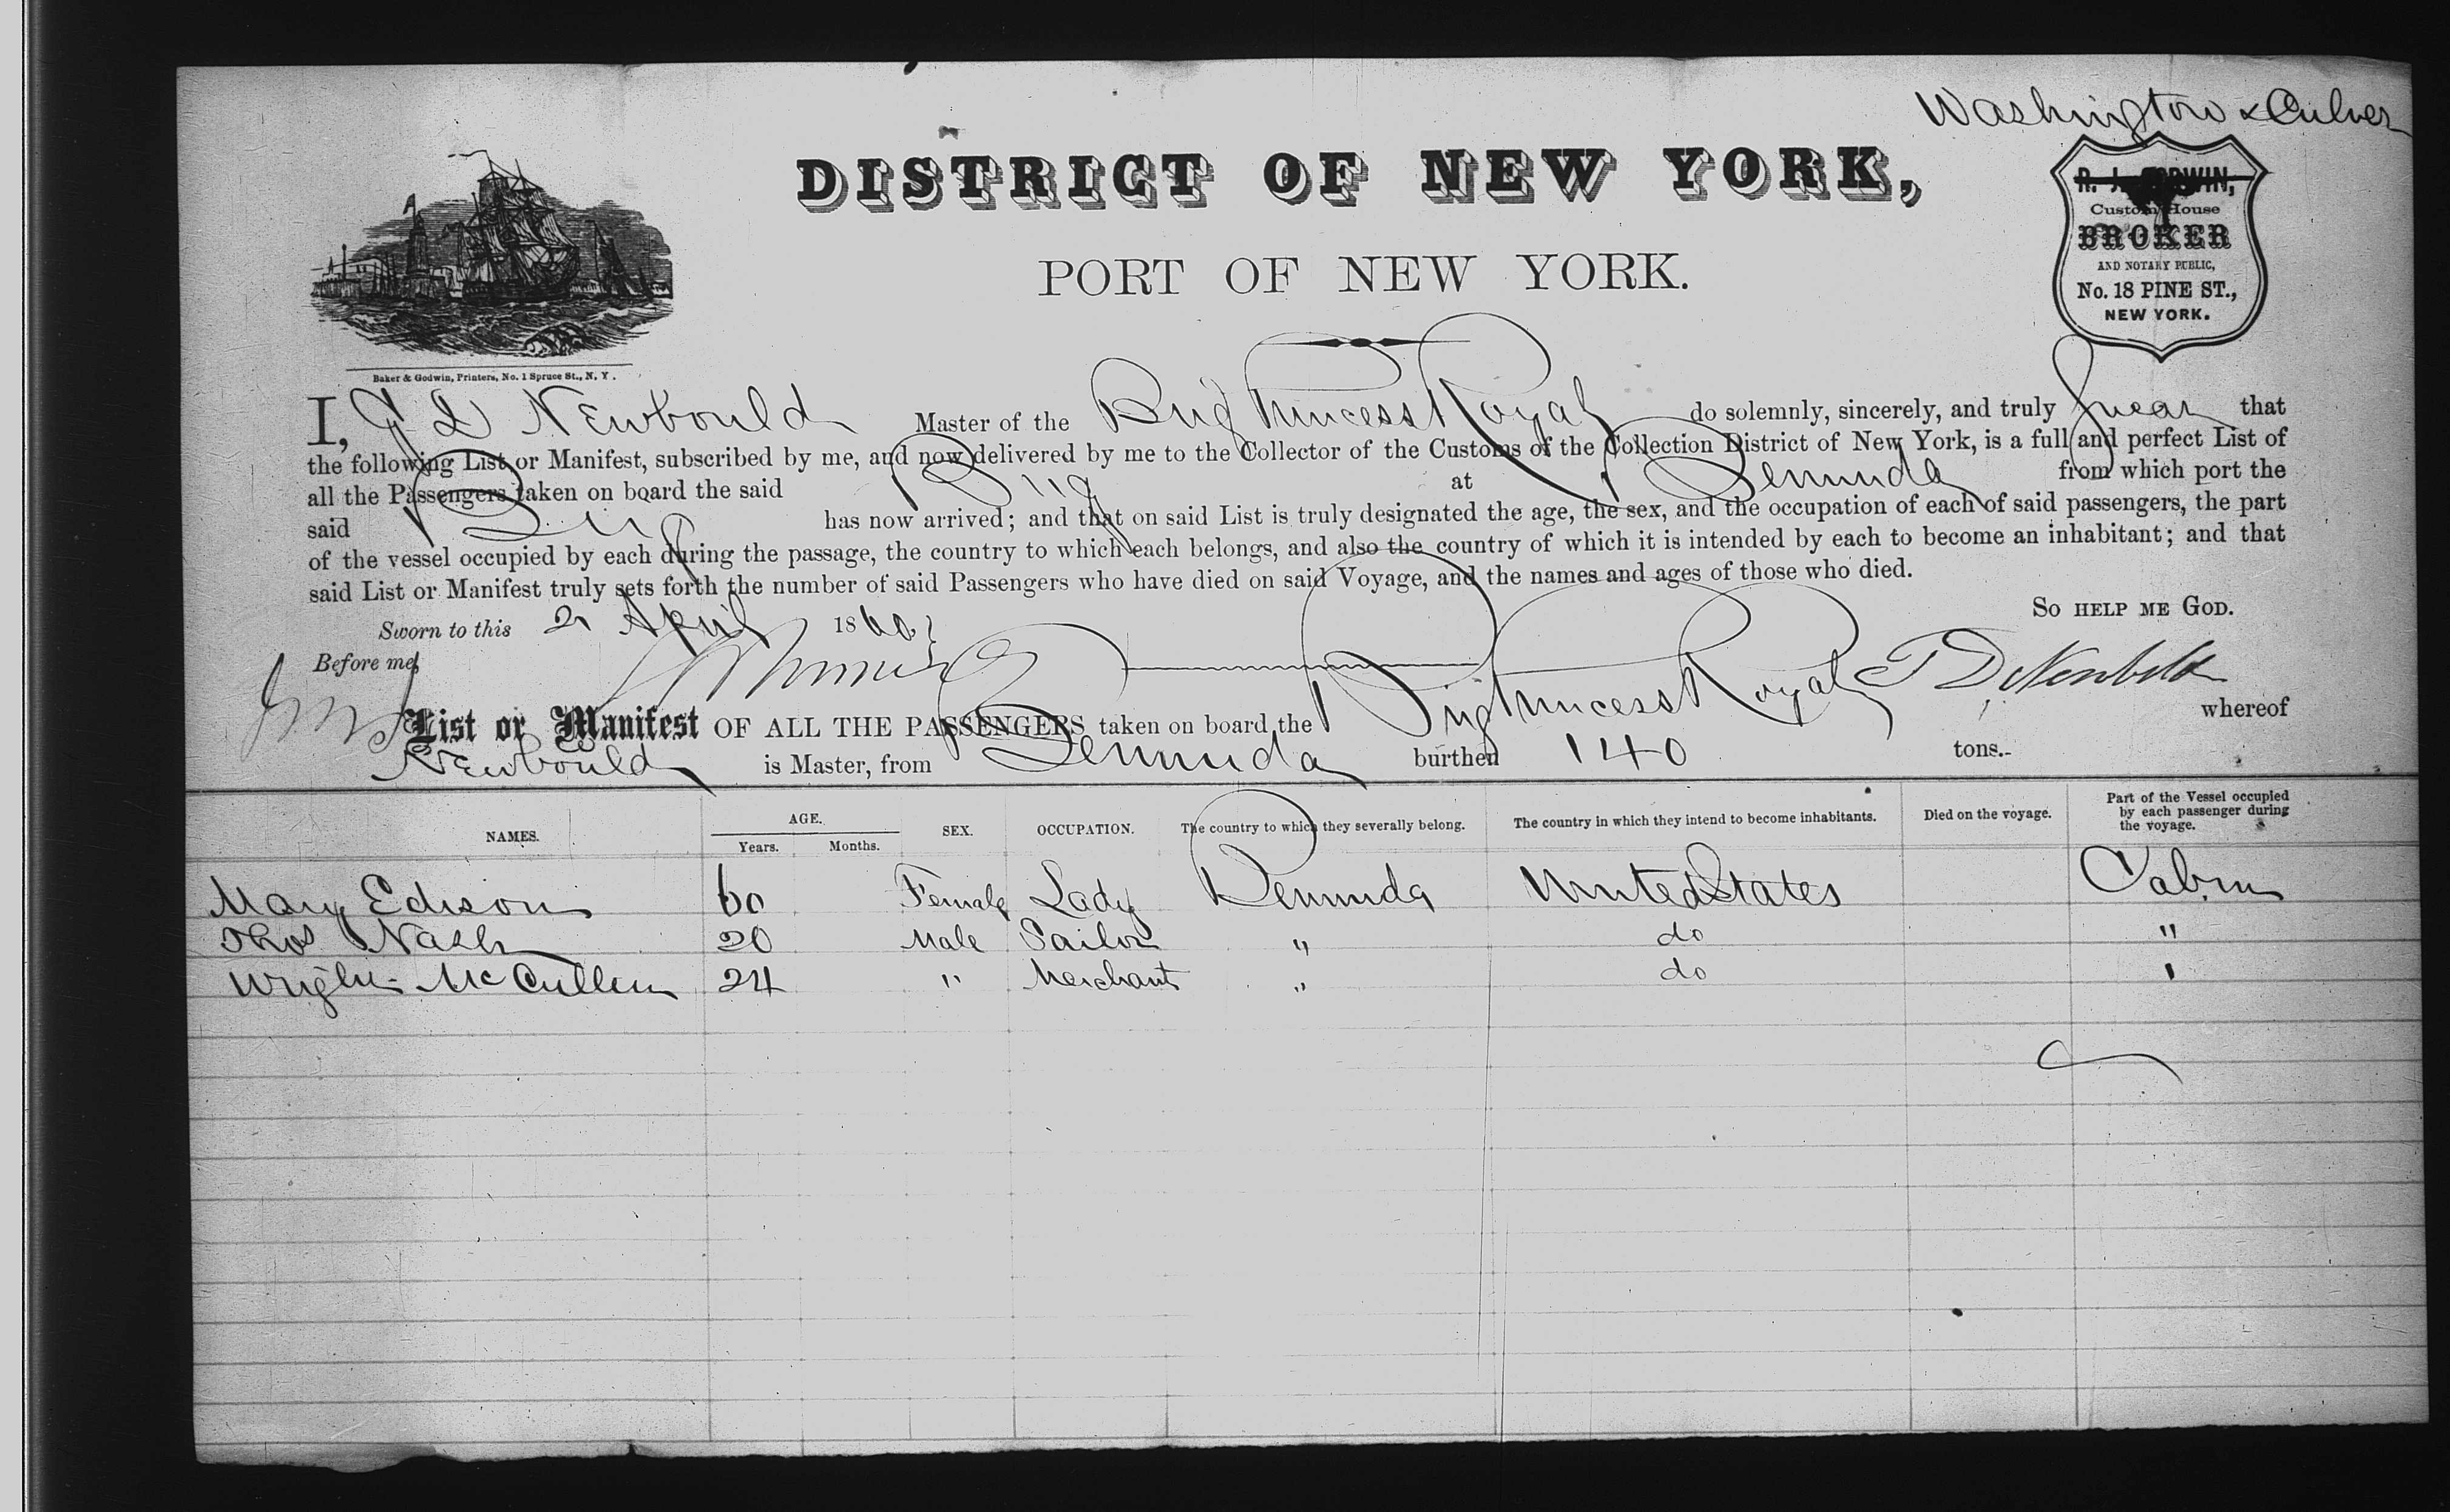 Washington & Culver
DISTRICT OF NEW YORK,
PORT OF NEW YORK.
Custom House
BROKER
AND NOTARY PUBLIC,
No. 18 PINE ST.,
NEW YORK.
Baker & Godwin, Printers, No. 1 Spruce St., N. Y.
I, J D Newbould Master of the Brig Princess Royal do solemnly, sincerely, and truly swear that
the following List or Manifest, subscribed by me, and now delivered by me to the Collector of the Customs of the Collection District of New York, is a full and perfect List of
all the Passengers taken on board the said Brig at Bermuda from which port the
said Brig has now arrived; and that on said List is truly designated the age, the sex, and the occupation of each of said passengers, the part
of the vessel occupied by each during the passage, the country to which each belongs, and also the country of which it is intended by each to become an inhabitant; and that
said List or Manifest truly sets forth the number of said Passengers who have died on said Voyage, and the names and ages of those who died.
So help me God.
Sworn to this 2 April 1860
Before me,
List or Manifest OF ALL THE PASSENGERS taken on board the Brig Princess Royal whereof
Newbould is Master, from Bermuda burthen 140 tons.
NAMES. AGE. Years. Months. SEX. OCCUPATION. The country to which they severally belong. The country in which they intend to become inhabitants. Died on the voyage. Part of the Vessel occupied by each passenger during the voyage.
Mary Edison 60 Female Lady Bermuda United States Cabin
Thos Nash 20 Male Sailor " do "
Wright McCullen 24 " Merchant " do "